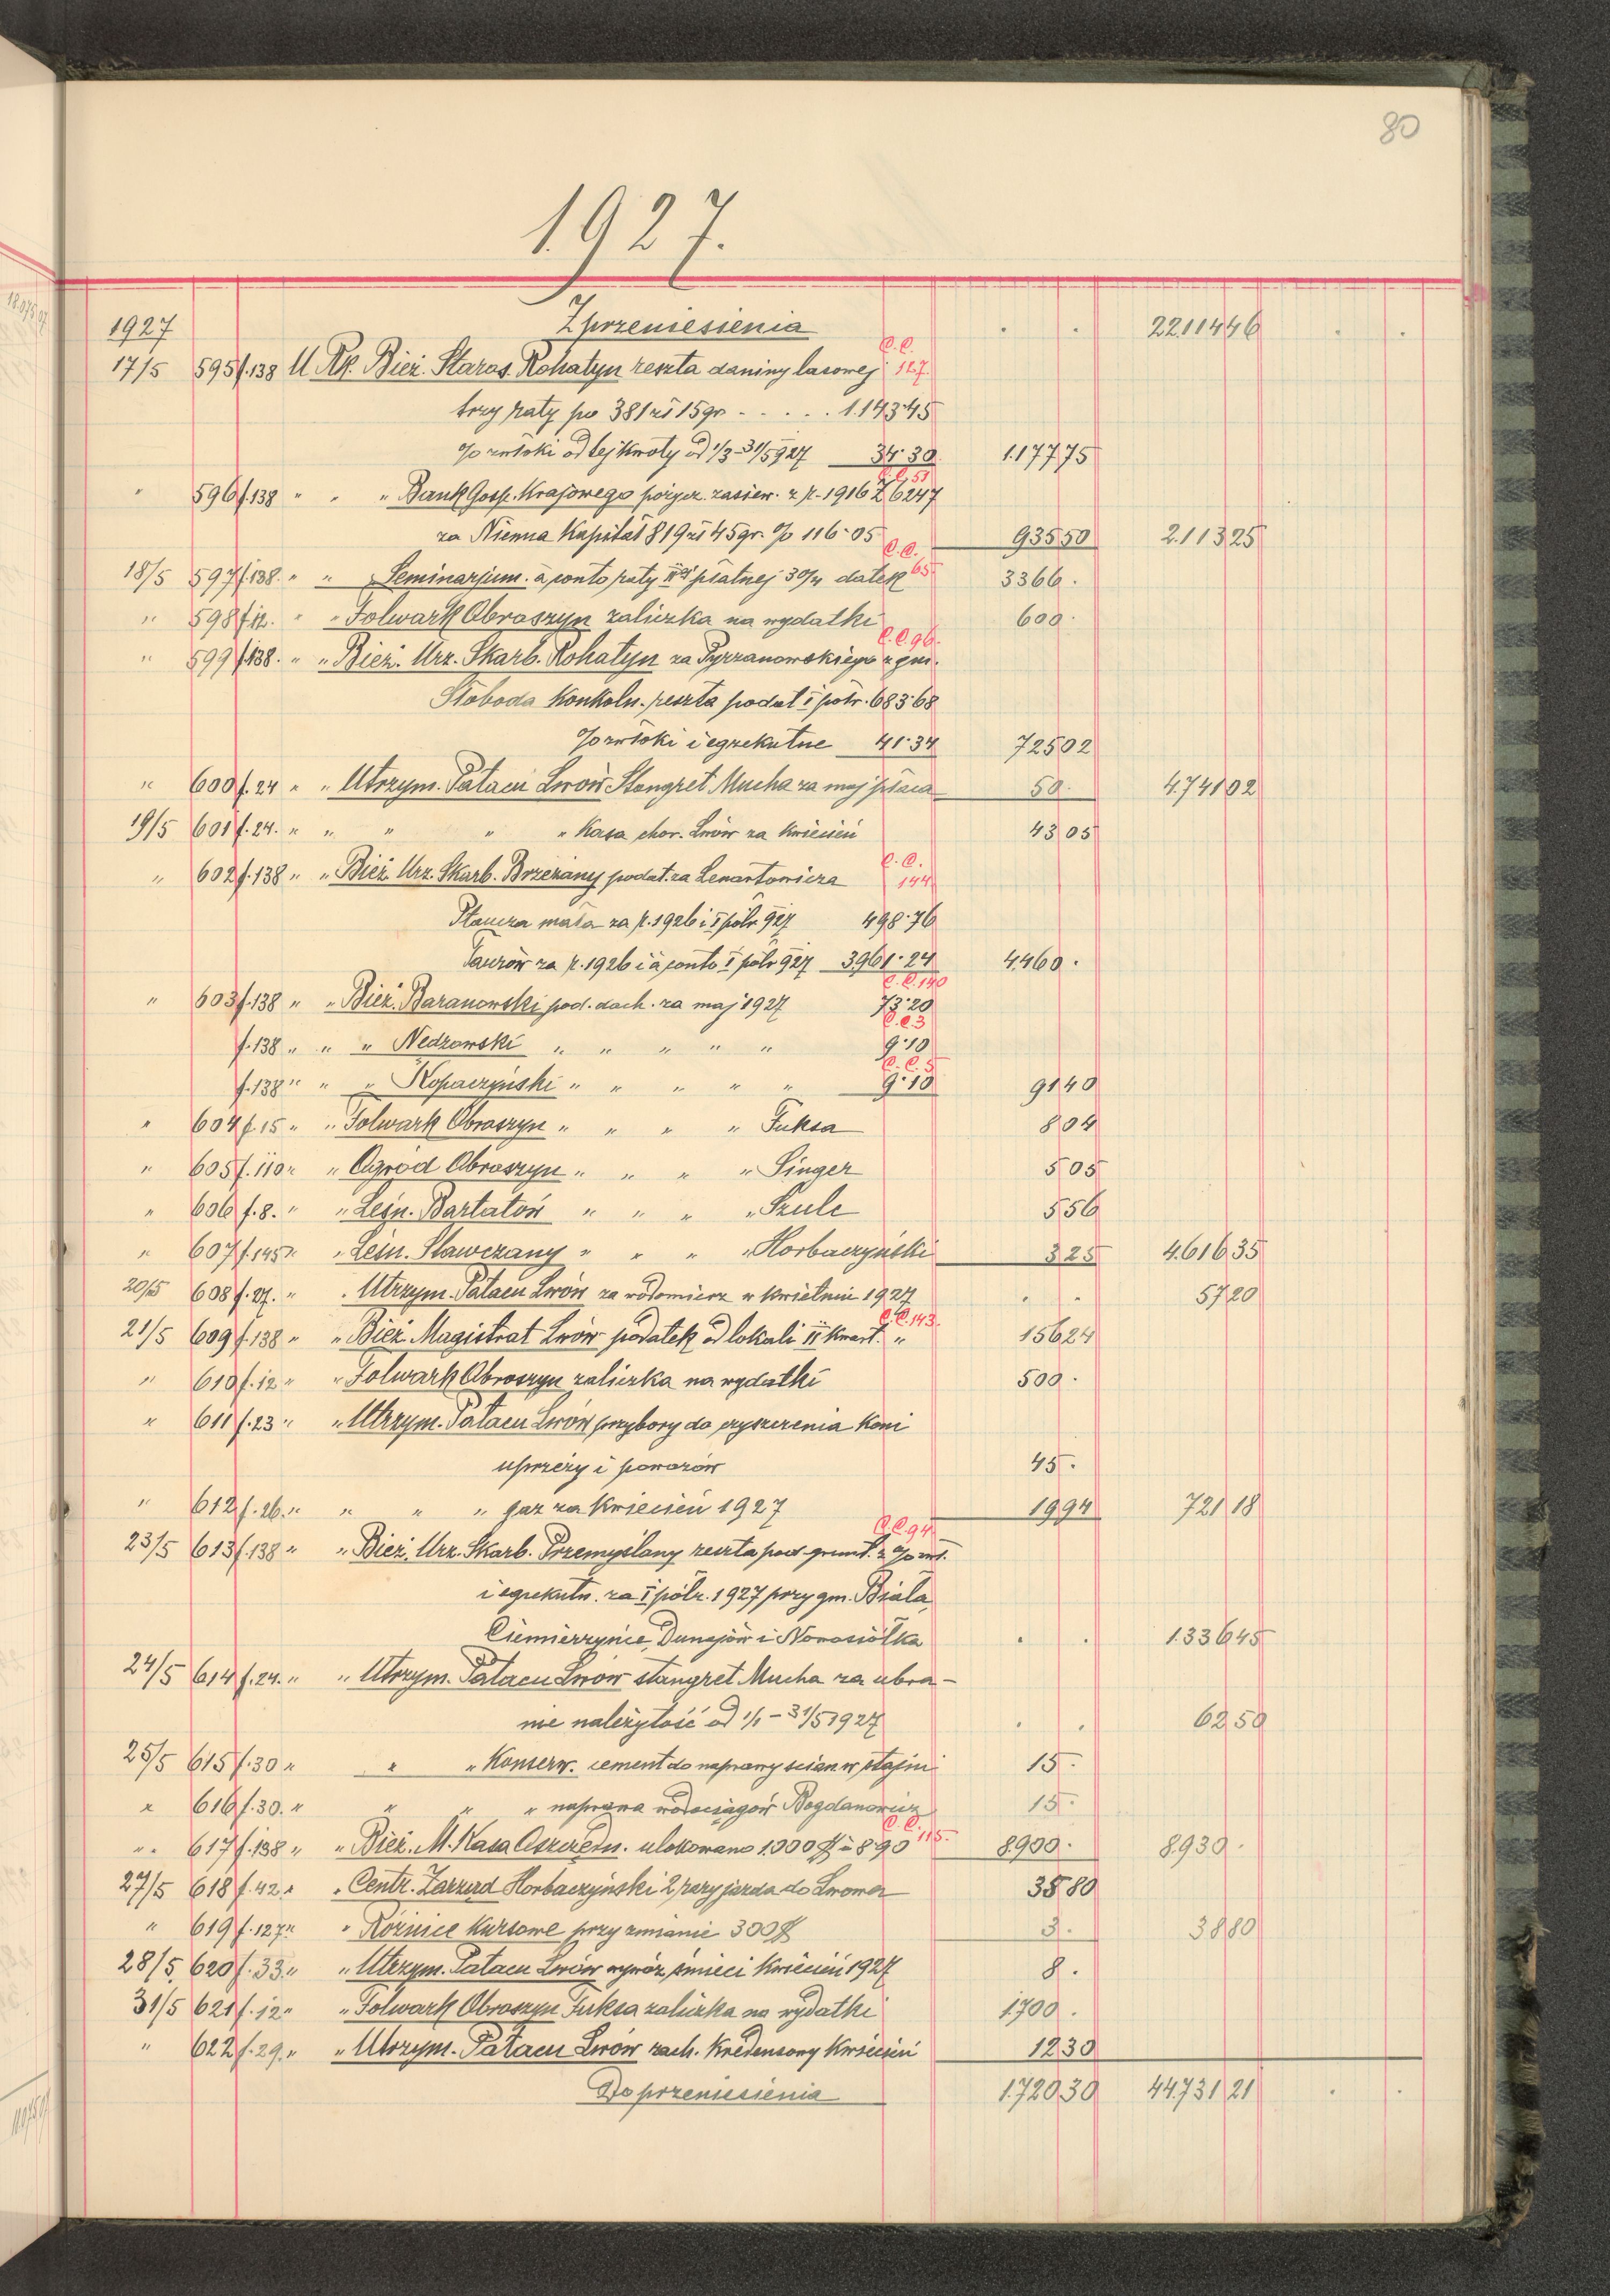 80
1927.
1927 Z przeniesienia . . 22.114 46
17/5 595 f.138 U Rp. Bież. Staros. Rohatyn reszta daniny lasowej C.C. 127.
trzy raty po 381 zł 15 gr - . . . . 1.143·45
% zwłoki od tej kwoty od 1/3-31/5 927 34·30 1.177 75
" 596 f.138 " " " Bank Gosp. Krajowego pożycz. zasiew. z r. 1916 Z 6247 C.C. 51
za Nienna Kapitał 819 zł 45 gr. % 116·05 935 50 2.113 25
18/5 597 f.138. " " Seminarjum. à conto raty IIej płatnej 30/4 datek C.C. 65. 3366 .
" 598 f.12. " " Folwark Obroszyn zaliczka na wydatki 600 .
" 599 f.138. " " Bież. Urz. Skarb. Rohatyn za Tyrzanowskiego z gm. C.C. 96.
Słoboda Konkoln. reszta podat I półr. 683·68
% zwłoki i egzekutne 41·34 725 02
" 600 f.24 " " Utrzym. Pałacu Lwów Stangret Mucha za maj płaca 50. 4.741 02
19/5 601 f.24. " " " " " Kasa chor. Lwów za kwiecień 43 05
" 602 f.138 " " Bież. Urz. Skarb. Brzeżany podat. za Lenartowicza C.C. 144
Płaucza mała za r. 1926 i I półr 927 498·76
Taurów za r. 1926 i à conto I półr 927 3961·24 4.460 .
" 603 f.138 " " Bież. Baranowski pod. doch. za maj 1927 C.C. 140 73·20
f.138 " " " Nedzowski " " " " " C.C. 3 9·10
f.138 " " " Kopaczyński " " " " " C.C. 5 9·10 91 40
" 604 f.15 " " Folwark Obroszyn " " " " Fuksa 8 04
" 605 f.110 " " Ogród Obroszyn " " " " Singer 5 05
" 606 f.8. " " Leśn. Bartatów " " " " Szulc 5 56
" 607 f.145 " " Leśn. Stawczany " " " " Horbaczyński 3 25 4.616 35
20/5 608 f.27. " " Utrzym. Pałacu Lwów za wodomierz w kwietniu 1927 . . 57 20
21/5 609 f.138 " " Bież. Magistrat Lwów podatek od lokali II kwart. " C.C. 143. 156 24
" 610 f.12 " " Folwark Obroszyn zaliczka na wydatki 500 .
" 611 f.23 " " Utrzym. Pałacu Lwów przybory do czyszczenia koni
uprzęży i powozów 45 .
" 612 f.26. " " " " gaz za kwiecień 1927 19 94 721 18
23/5 613 f.138 " " Bież. Urz. Skarb. Przemyślany reszta pod. grunt. z % zwł. C.C. 94
i egzekutn. za I półr. 1927 przy gm. Biała,
Ciemierzyńce, Dunajów i Nowosiółka . . 1.336 45
24/5 614 f.24. " " Utrzym. Pałacu Lwów stangret Mucha za ubra-
nie należytość od 1/1 - 31/5 1927 . . 62 50
25/5 615 f.30 " " " Konserw. cement do naprawy ścian w stajni 15 .
" 616 f.30. " " " " naprawa wodociągów Bogdanowicz 15 .
" 617 f.138 " " Bież. M. Kasa Oszczędn. ulokowano 1.000 $ à 8·90 C.C. 115. 8.900 . 8.930 .
27/5 618 f.42. " " Centr. Zarząd Horbaczyński 2 razy jazda do Lwowa 35 80
" 619 f.127 " " Różnice Kursowe przy zmianie 300 $ 3 . 38 80
28/5 620 f.33. " " Utrzym. Pałacu Lwów wywóz śmieci Kwiecień 1927 8 .
31/5 621 f.12 " " Folwark Obroszyn Fuksa zaliczka na wydatki 1.700 .
" 622 f.29. " " Utrzym. Pałacu Lwów rach. Kredensowy Kwiecień 12 30
Do przeniesienia 1.720 30 44.731 21 . .